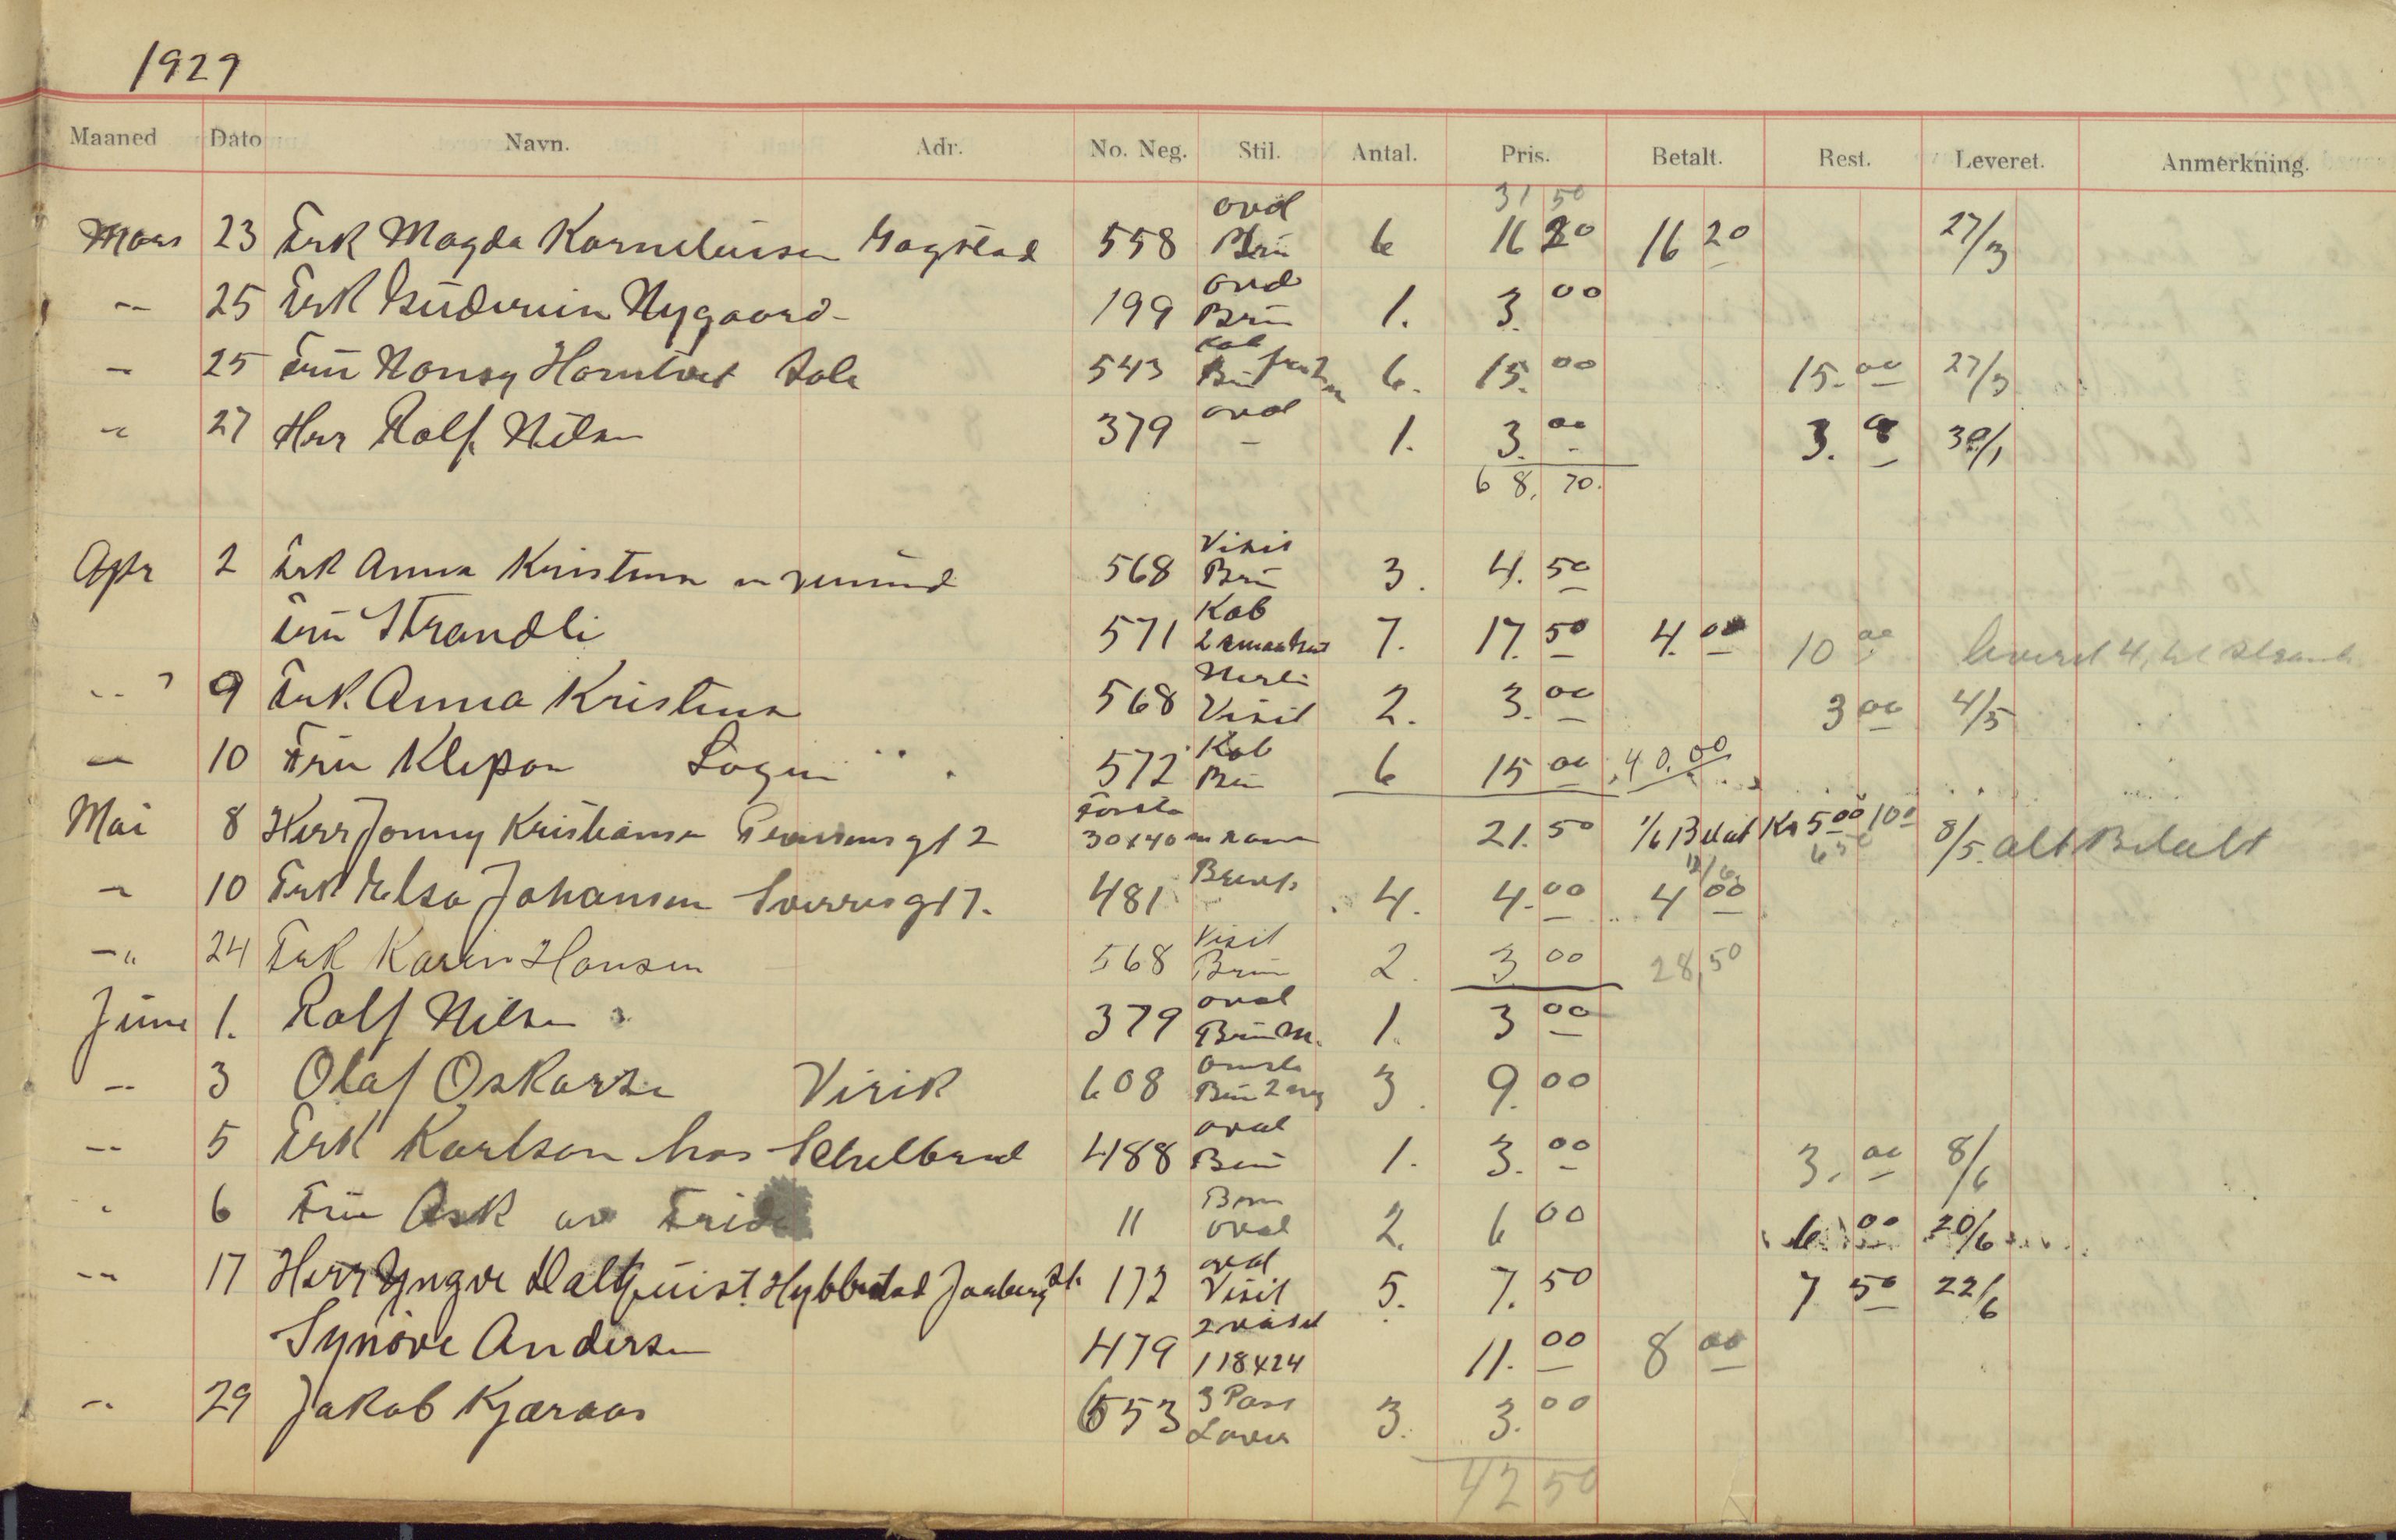 1929
Maaned Dato Navn. Adr. No. Neg. Stil. Antal. Pris. Betalt. Rest. Leveret. Anmerkning.
31 50
Mars 23 Frk Magda Korneliussen Gogstad 558 oval Brun 6 16 20 16 20 27/3
-- 25 Frk Nygaard 199 oval Brun 1. 3. 00
-- 25 Fru Hornlvet 543 Kab 6. 15. 00 15. 00 27/3
-- 27 Herr Rolf Nilsen 379 oval - 1. 3. 00 3. 30/
68, 70.
Apr 2 Frk Anna Kristensen 568 Visit Brun 3. 4. 50
Fru Strandli 571 Kab 7. 17. 50 4. 00 10 00 leveret 4,
-- 9 Frk. Anna Kristensen 568 Visit 2. 3. 00 3 00 4/5
-- 10 Fru Klepan Løgen 572 Kab Brun 6 15 00 40.00
Mai 8 Herr Jonny Kristiansen gt 2 Forst. 30x40 m ramme 21. 50 1/6 Betalt Kr 5 00 10 00 6 50 8/5. alt Betalt
-- 10 Frk Elsa Johansen Sverresgt 7. 481 Brevk 4. 4. 00 12/6 4 00
-- 24 Frk Karin Hansen 568 Visit Brun 2 3 00 28,50
June 1. Rolf Nilsen 379 oval Brun M. 1. 3 00
-- 3 Olaf Oskarsen Virik 608 Brun 3. 9. 00
-- 5 Frk Karlsen hos 488 oval Brun 1. 3. 00 3. 00 8/6
-- 6 Fru Ask av Frida 11 Brun oval 2. 6 00 6 00 20/6
-- 17 Herr Yngve Dalquist. 172 oval Visit 5. 7. 50 7 50 22/6
Synöve Andersen 479 2 visit 1 18x24 11. 00 8 00
-- 29 Jakob Kjæraas 653 3 Pass 3. 3. 00
42 50